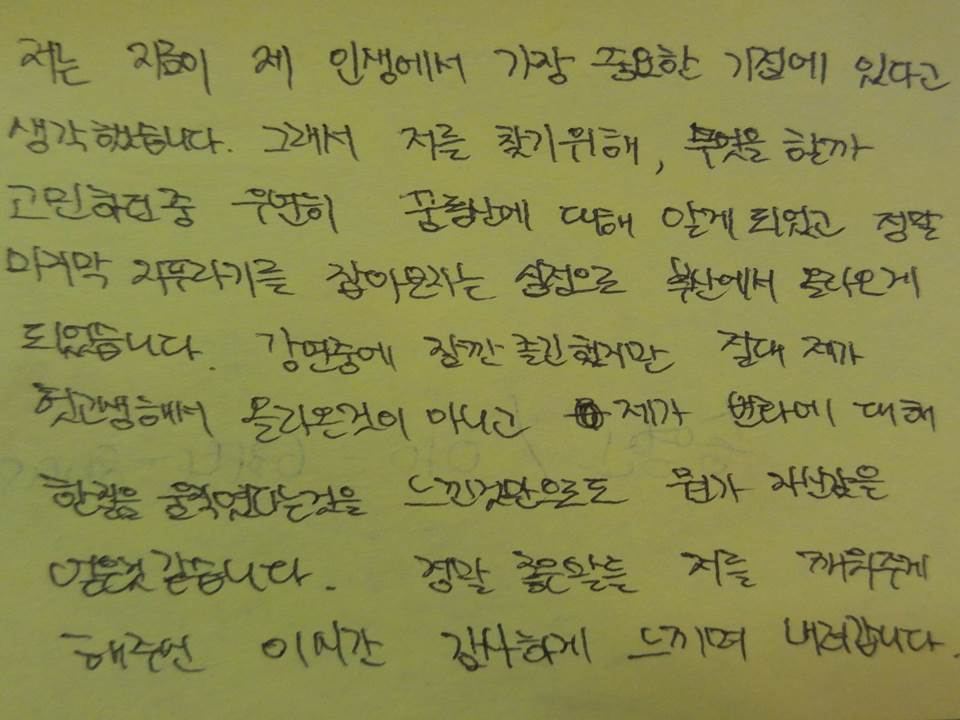 저는 지금이 제 인생에서 가장 중요한 기점에 있다고
생각했습니다. 그래서 저를 찾기위해, 무엇을 할까
고민하던중 우연히 꿈틀상에 대해 알게 되었고 정말
마지막 지푸라기를 잡아보자는 심정으로 부산에서 올라오게
되었습니다. 강연중에 잠깐 졸긴했지만 절대 제가
헛고생해서 올라온것이 아니고 제가 변화에 대해
한발을 움직였다는것을 느낀것만으로도 뭔가 자신감을
얻은것 같습니다. 정말 좋은말들 저를 깨워주게
해주던 이시간 감사하게 느끼며 내려갑니다.